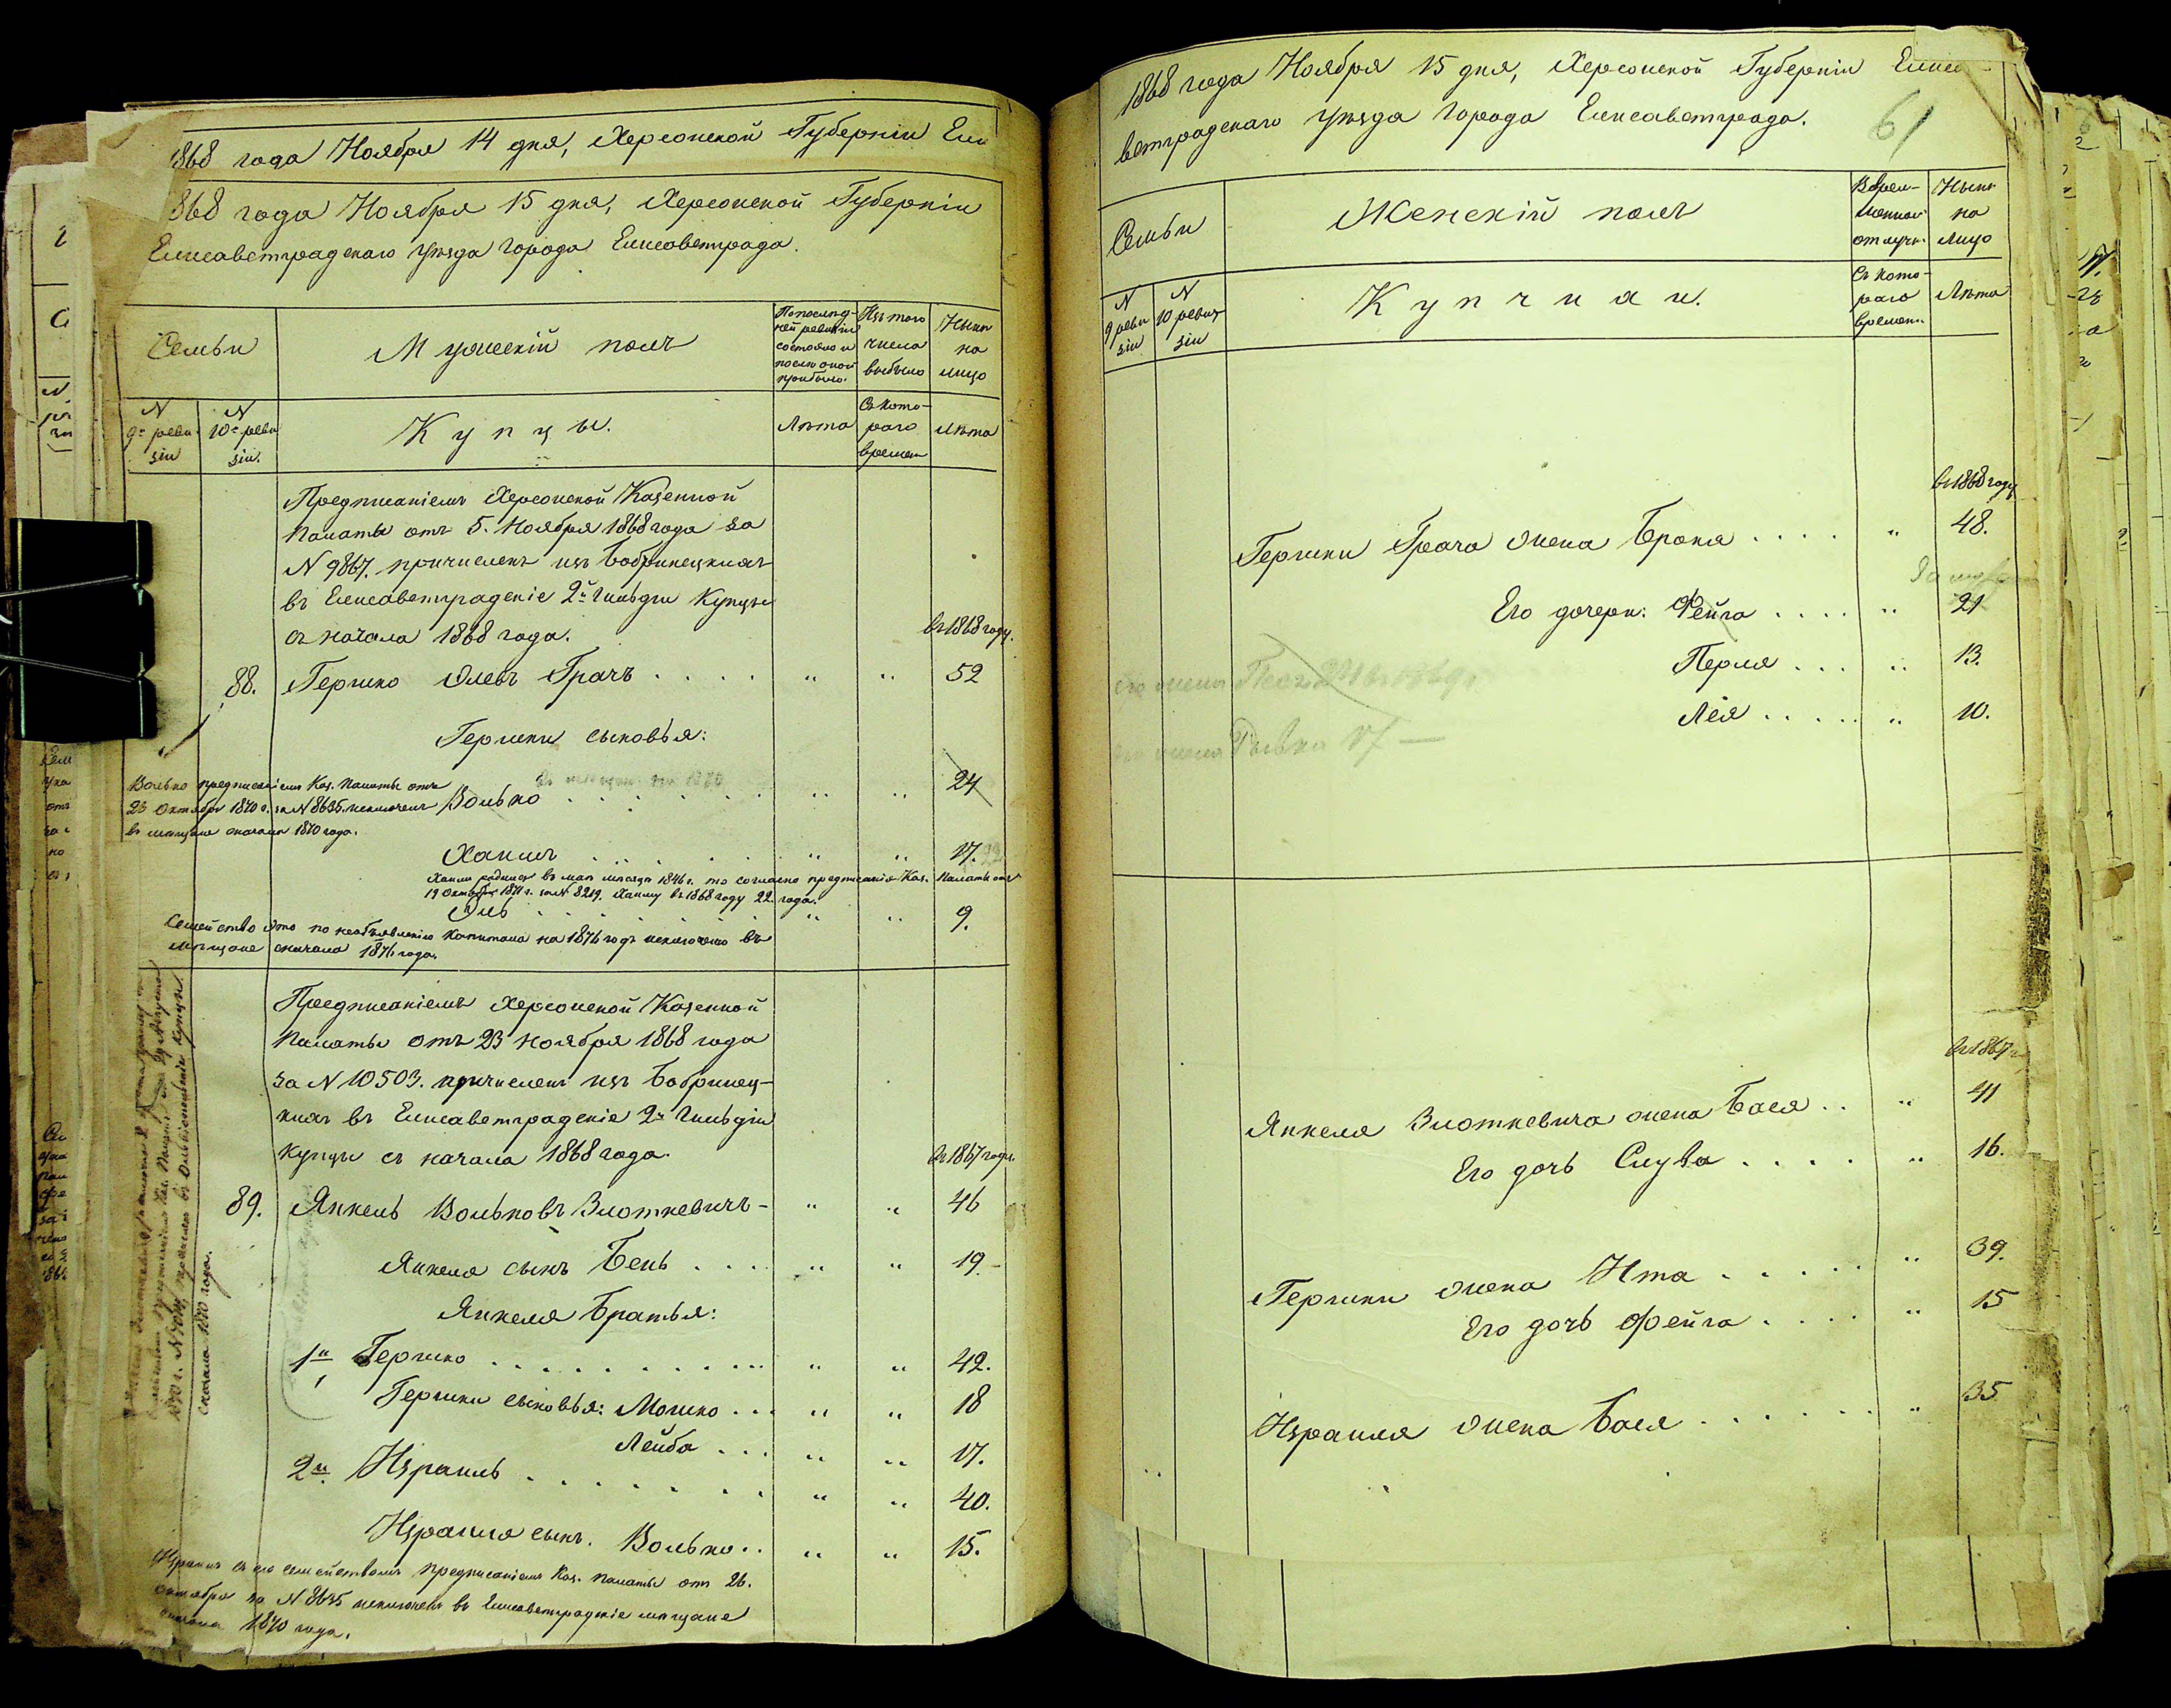 1868 года Ноября 14 дня, Херсонской Губерніи
1868 года Ноября 15 дня, Херсонской Губерніи
Елисаветградскаго уѣзда города Елисаветграда.
Семьи
Мужескій полъ
По послѣд-
ней ревизіи
состояло и
послѣ оной
прибыло.
Изъ того
числа
выбыло
Нынѣ
на
лицо
N
9й реви
зіи
N
10й реви
зіи.
Купцы.
Лѣта
Съ кото-
раго
времени
Лѣта
Предписаніемъ Херсонской Казенной
Палаты отъ 5. Ноября 1868 года за
N 9867. причисленъ изъ Бобринецкихъ
въ Елисаветградскіе 2й Гильдіи Купцы
съ начала 1868 года.
въ 1868 году.
88. Гершко Олевъ Грачъ . . . . " " 52
Гершки сыновья:
Волько предписаніемъ Каз. Палаты отъ
26 Октября 1870 г. за N 8635. исключенъ
въ мѣщане сначала 1870 года.
Волько . . . . . . " " 24
Хаимъ . . . . . " " 17.
Хаимъ родился въ маѣ мѣсяцѣ 1846 г. то согласно предписанія Каз. Палаты отъ
19 Октября 1871 г. за N 8219. Хаиму въ 1868 году 22 года.
Оль . . . . . . " " 9.
Семейство это по необъявленію Капитала на 1876 годъ исключено въ
мѣщане сначала 1876 года.
Предписаніемъ Херсонской Казенной
Палаты отъ 23 Ноября 1868 года
за N 10503. причисленъ изъ Бобринец-
кихъ въ Елисаветградскіе 2й Гильдіи
купцы съ начала 1868 года.
въ 1867 году.
89. Янкель Вольковъ Злоткевичъ - " " 46
Янкеля сынъ Бень . . . . " " 19.
Янкеля Братья:
1й Гершко . . . . . . . . " " 42.
Гершки сыновья: Мошко . . . " " 18
Лейба . . . " " 17.
2й Израиль . . . . . . . " " 40.
Израиля сынъ. Волько . . " " 15.
Израиль съ его семействомъ предписаніемъ Каз. Палаты отъ 26.
октября за N 8635 исключенъ въ Елисаветградскіе мѣщане
сначала 1870 года.
сначала 1870 года.
1868 года Ноября 15 дня, Херсонской Губерніи Елиса
ветградскаго уѣзда города Елисаветграда.
61
Семьи
Женскій полъ
Въ врем-
менной
отлучк.
Нынѣ
на
лицо
N
9 реви
зіи
N
10 реви
зіи
Купчихи.
Съ кото-
раго
времени
Лѣта
въ 1868 году
Гершки Грача жена Броня . . . . " 48.
Его дочери: Фейга . . . . " 21
Перля . . . " 13.
Лея . . . . . " 10.
его жена Рывка 17 —
въ 1867
Янкеля Злоткевича жена Бася . . " 41
Его дочь Слува . . . . " 16.
Гершки жена Ита . . . . . " 39.
Его дочь Фейга . . . . " 15
Израиля жена Бася . . . . . . " 35